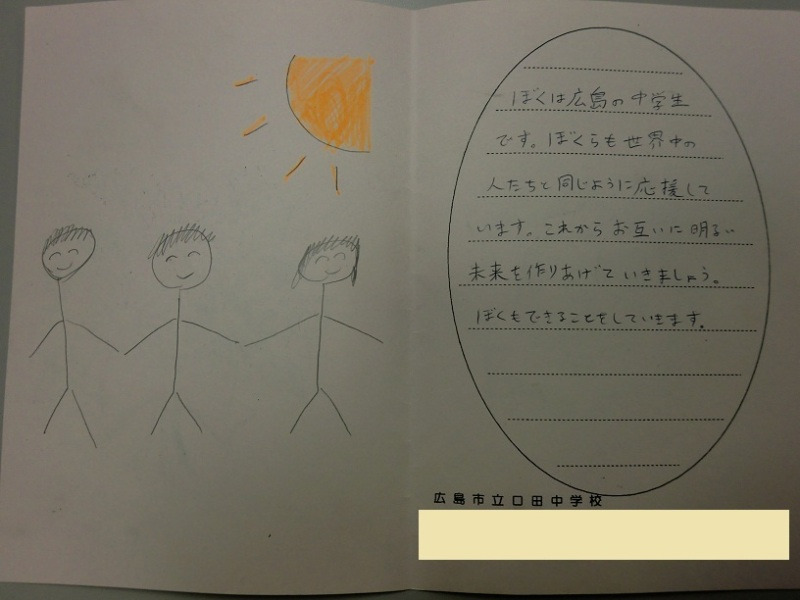 ぼくは広島の中学生
です。ぼくらも世界中の
人たちと同じように応援して
います。これからお互いに明るい
未来を作りあげていきましょう。
ぼくもできることをしていきます。
広島市立口田中学校